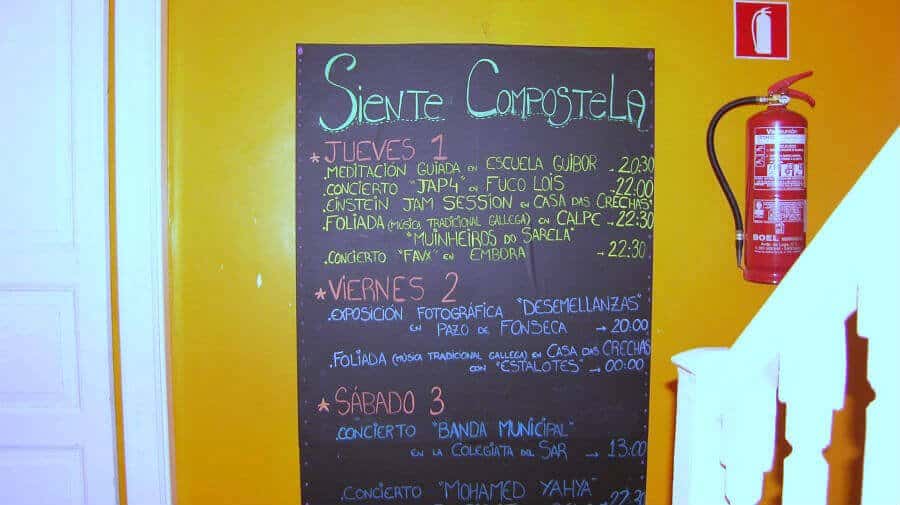 Siente Compostela
* JUEVES 1
.MEDITACIÓN GUIADA EN ESCUELA GUIBOR → 20:30
.CONCIERTO "JAP4" EN FUCO LOIS → 22:00
.EINSTEIN JAM SESSION EN CASA DAS CRECHAS
.FOLIADA (MÚSICA TRADICIONAL GALLEGA) EN CALPE → 22:30
"MUINHEIROS DO SARELA"
.CONCIERTO "FAVX" EN EMBORA → 22:30
* VIERNES 2
.EXPOSICIÓN FOTOGRÁFICA "DESEMELLANZAS"
EN PAZO DE FONSECA → 20:00
.FOLIADA (MÚSICA TRADICIONAL GALLEGA) EN CASA DAS CRECHAS
CON "ESTALOTES" → 00:00
* SÁBADO 3
.CONCIERTO "BANDA MUNICIPAL"
EN LA COLEGIATA DEL SAR → 13:00
.CONCIERTO "MOHAMED YAHYA"
22:30
BOEL